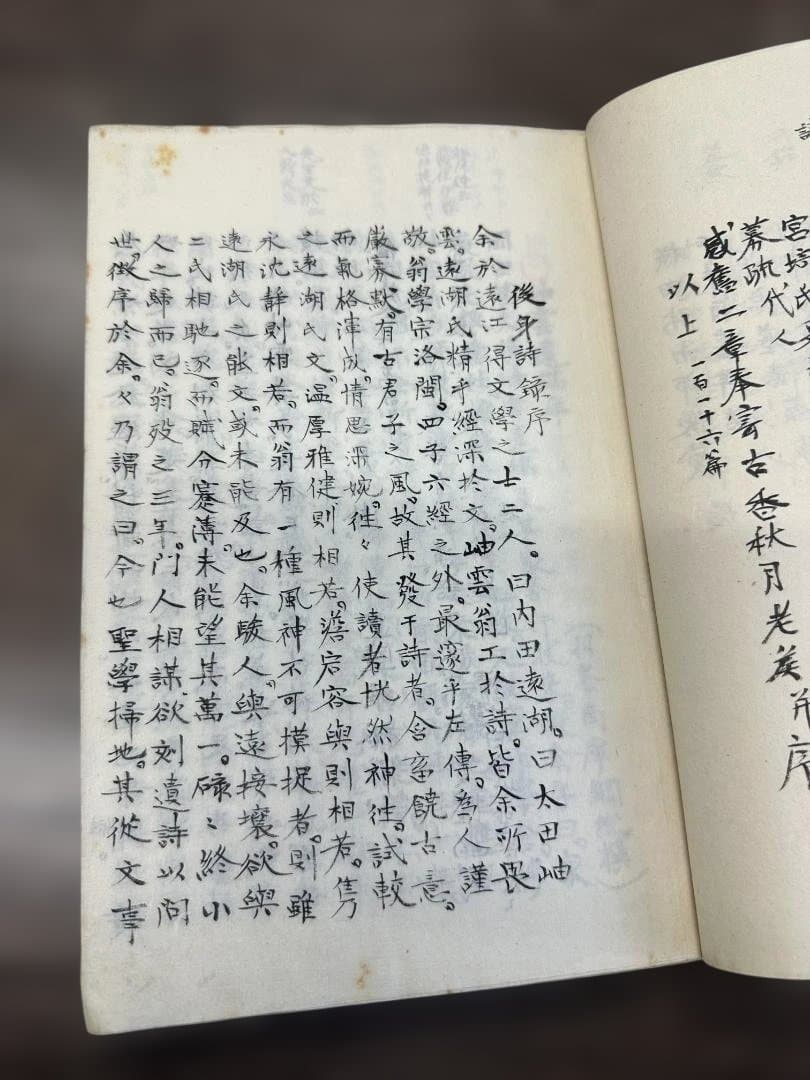 宮培氏
幕疏代人
感舊二章奉寄古香秋月老矦并序
以上 一百一十六篇
後年詩錄序
余於遠江得文學之士二人。曰内田遠湖。曰太田岫
雲。遠湖氏精乎經深於文。岫雲翁工於詩。皆余所畏
敬。翁學宗洛閩。四子六經之外。最邃乎左傳。為人謹
嚴寡默。有古君子之風。故其發于詩者。含蓄饒古意。
而氣格渾成。情思深婉。往々使讀者恍然神往。試較
之遠湖氏文。温厚雅健則相若。澹宕容與則相若。雋
永沈靜則相若。而翁有一種風神不可摸捉者。則雖
遠湖氏之能文。或未能及也。余駿人。與遠接壤。欲與
二氏相馳逐。而賦分蹇薄。未能望其萬一。碌々終小
人之歸而已。翁歿之三年。門人相謀。欲刻遺詩以問
世。徴序於余。々乃謂之曰。今也聖學掃地。其從文事